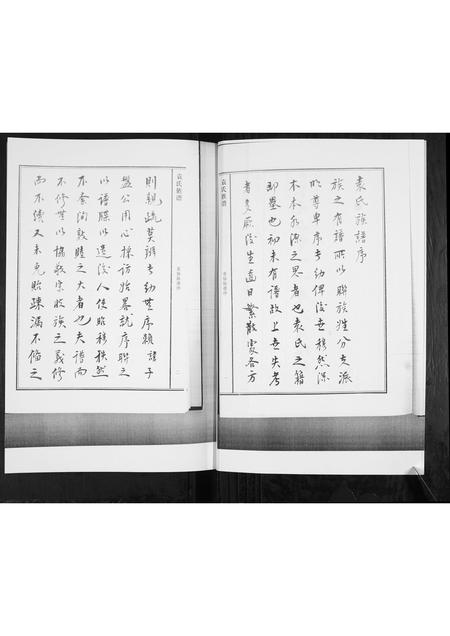 袁氏族谱
袁氏族譜序
族之有譜所以聯族姓分支派
明尊卑序長幼俾後世穆然深
木本水源之思者也袁氏之籍
即墨也初未有譜故上世失考
者多厥後生齒日繁散處各方
袁氏族谱
二
則親疏莫辨長幼無序穎諱子
盤公用心採訪始畧就序聯之
以譜牒以遺後人使昭穆秩然
不紊洵敦睦之大者也夫譜而
不修無以協敬宗收族之義修
而不慎又未免貽疎漏不備之